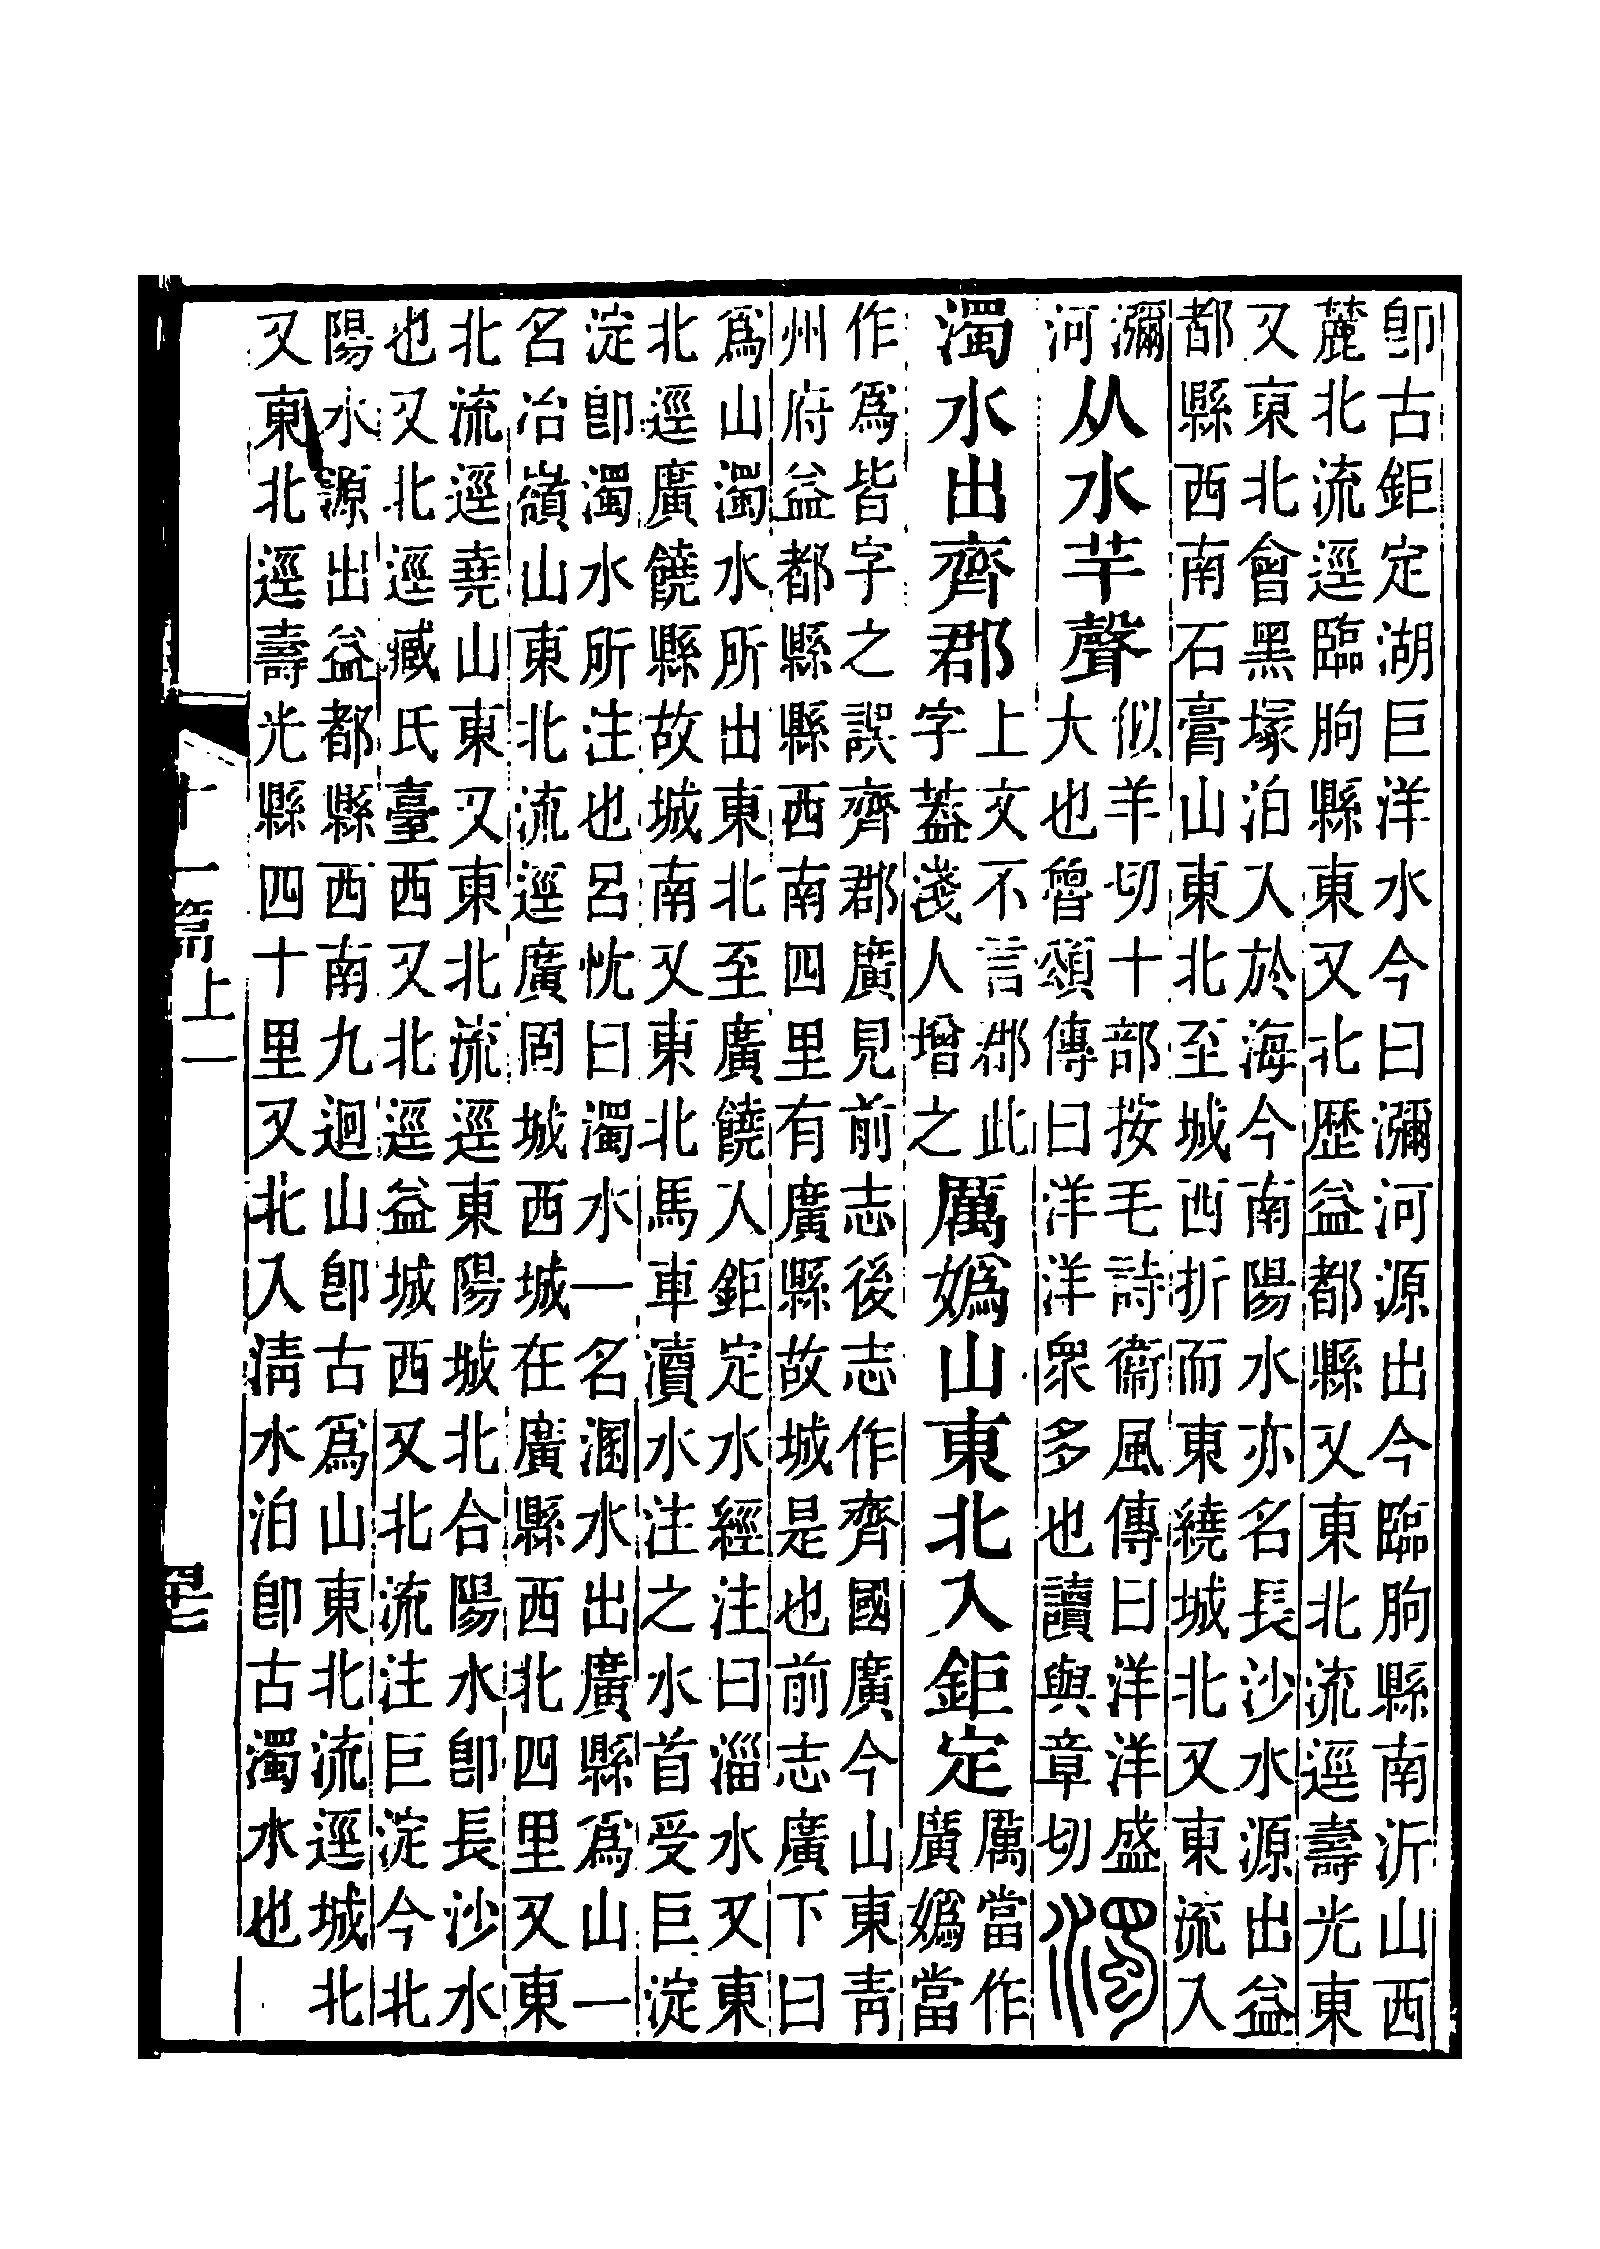 卽古鉅定湖巨洋水今曰瀰河源出今臨朐縣南沂山西
麓北流逕臨朐縣東又北歷益都縣又東北流逕壽光東
又東北會黑塚泊入於海今南陽水亦名長沙水源出益
都縣西南石膏山東北至城西折而東繞城北又東流入
瀰
河
从水羊聲
似羊切十部按毛詩衞風傳曰洋洋盛
大也魯頌傳曰洋洋衆多也讀與章切
濁
濁水出齊郡
上文不言郡此
字葢淺人增之
厲嬀山東北入鉅定
厲當作
廣嬀當
作爲皆字之誤齊郡廣見前志後志作齊國廣今山東靑
州府益都縣縣西南四里有廣縣故城是也前志廣下曰
爲山濁水所出東北至廣饒入鉅定水經注曰淄水又東
北逕廣饒縣故城南又東北馬車瀆水注之水首受巨淀
淀卽濁水所注也呂忱曰濁水一名溷水出廣縣爲山一
名冶嶺山東北流逕廣固城西城在廣縣西北四里又東
北流逕堯山東又東北流逕東陽城北合陽水卽長沙水
也又北逕臧氏臺西又北逕益城西又北流注巨淀今北
陽水源出益都縣西南九迴山卽古爲山東北流逕城北
又東北逕壽光縣四十里又北入淸水泊卽古濁水也
十一篇上一